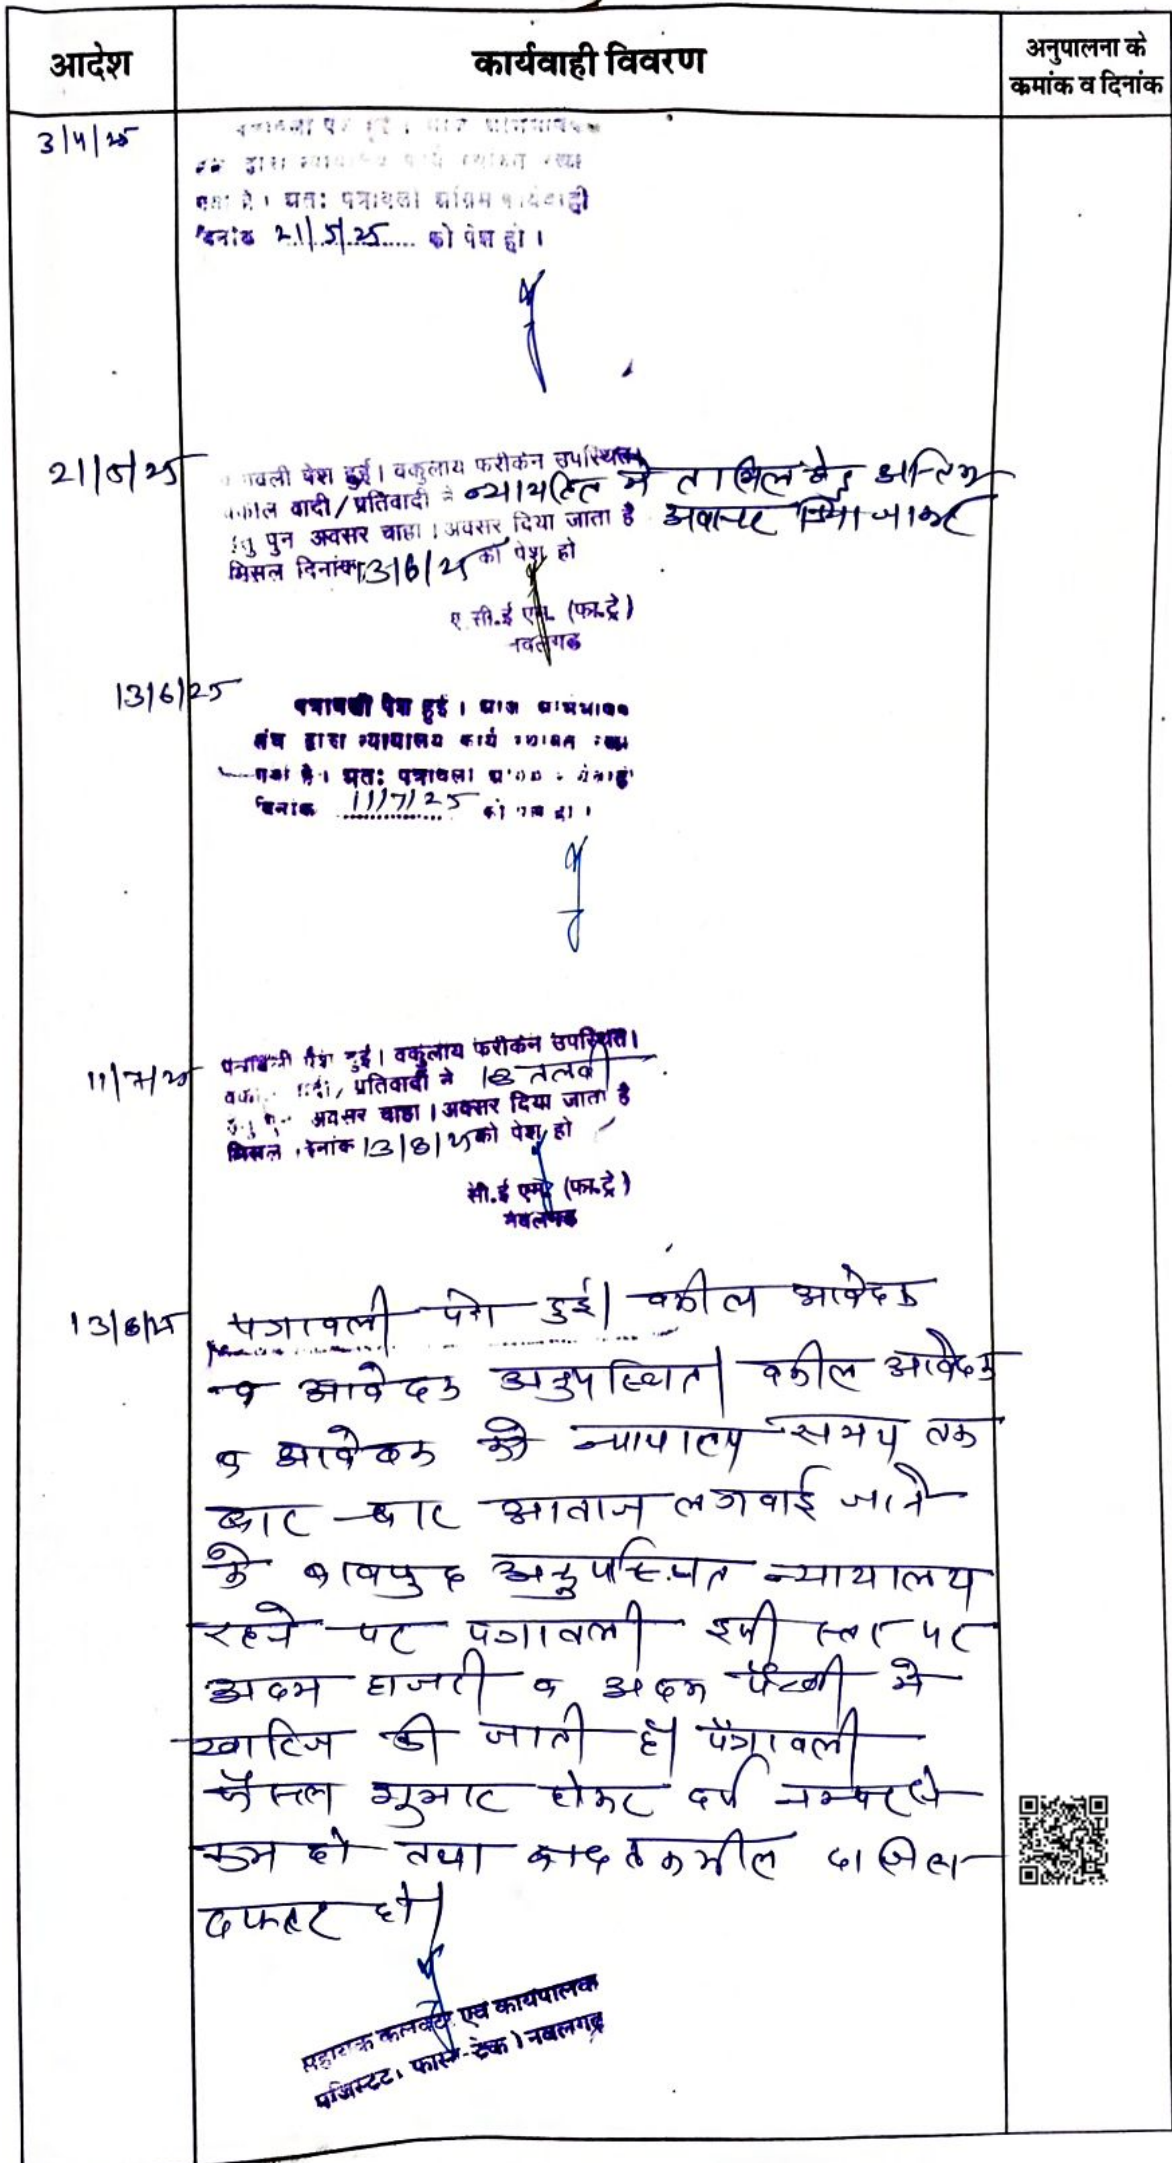 आदेश
कार्यवाही विवरण
अनुपालना के
कमांक व दिनांक
3/4/25
पत्रावली पेश हुई । आज अभिभाषक
संघ द्वारा न्यायालय कार्य स्थगित रखा
गया है । अतः पत्रावली अग्रिम कार्यवाही
दिनांक 21/5/25 को पेश हो ।
21/5/25
पत्रावली पेश हुई । वकुलाय फरीकेन उपस्थित।
वकील वादी/प्रतिवादी ने न्यायहित में तामिल हेतु अन्तिम
हेतु पुन अवसर चाहा । अवसर दिया जाता है अवसर दिया जाकर
मिसल दिनांक 13/6/25 को पेश हो
ए.सी.ई एम. (फा.ट्रे)
नवलगढ
13/6/25
पत्रावली पेश हुई । आज अभिभाषक
संघ द्वारा न्यायालय कार्य स्थगित रखा
गया है । अतः पत्रावली
दिनांक 11/7/25 को पेश हो ।
11/7/25
पत्रावली पेश हुई । वकुलाय फरीकेन उपस्थित।
वकील वादी/ प्रतिवादी ने तलबी
अवसर चाहा । अवसर दिया जाता है
मिसल दिनांक 13/8/25 को पेश हो
सी.ई एम. (फा.ट्रे)
नवलगढ
13/8/25
पत्रावली पेश हुई। वकील आवेदक
व आवेदक अनुपस्थित। वकील आवेदक
व आवेदक को न्यायालय समय तक
बार-बार आवाज लगवाई जाने
के बावजुद अनुपस्थित न्यायालय
रहने पर पत्रावली इसी स्तर पर
अदम हाजरी व अदम पैरवी मे
खारिज की जाती है। पत्रावली
फैसल शुमार होकर दर्ज नम्बर से
कम हो तथा बाद तकमील दाखिल
दफ्तर हो।
सहायक कलक्टर एवं कार्यपालक
मजिस्ट्रेट (फास्ट-ट्रेक) नवलगढ़